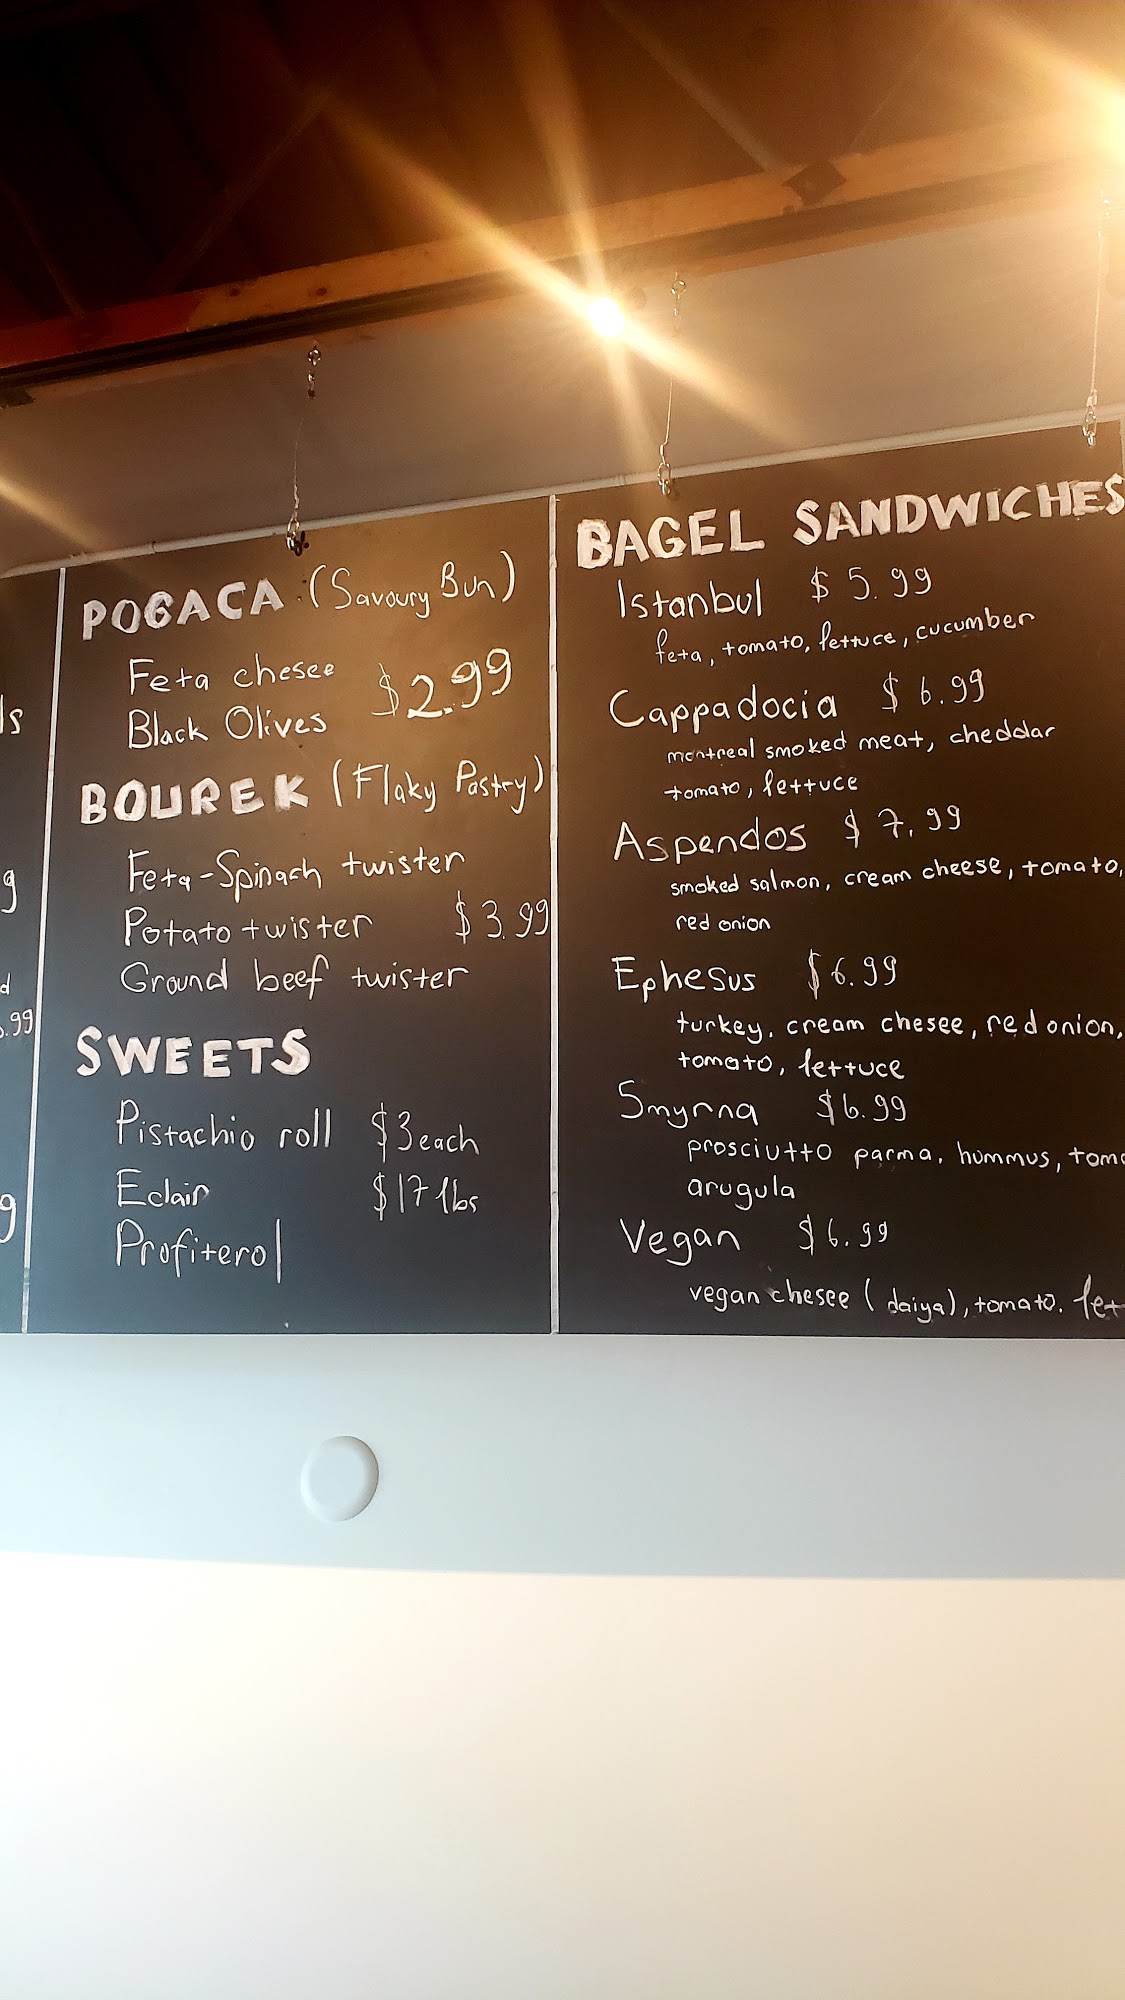 ls
g
d
.99
g
POGACA (Savoury Bun)
Feta chesee $2.99
Black Olives
BOUREK (Flaky Pastry)
Feta-Spinach twister
Potato twister $3.99
Ground beef twister
SWEETS
Pistachio roll $3each
Eclair $17 lbs
Profiterol
BAGEL SANDWICHES
Istanbul $5.99
feta, tomato, lettuce, cucumber
Cappadocia $6.99
montreal smoked meat, cheddar
tomato, lettuce
Aspendos $7.99
smoked salmon, cream cheese, tomato,
red onion
Ephesus $6.99
turkey, cream chesee, red onion,
tomato, lettuce
Smyrna $6.99
prosciutto parma, hummus, toma
arugula
Vegan $6.99
vegan chesee (daiya), tomato. let